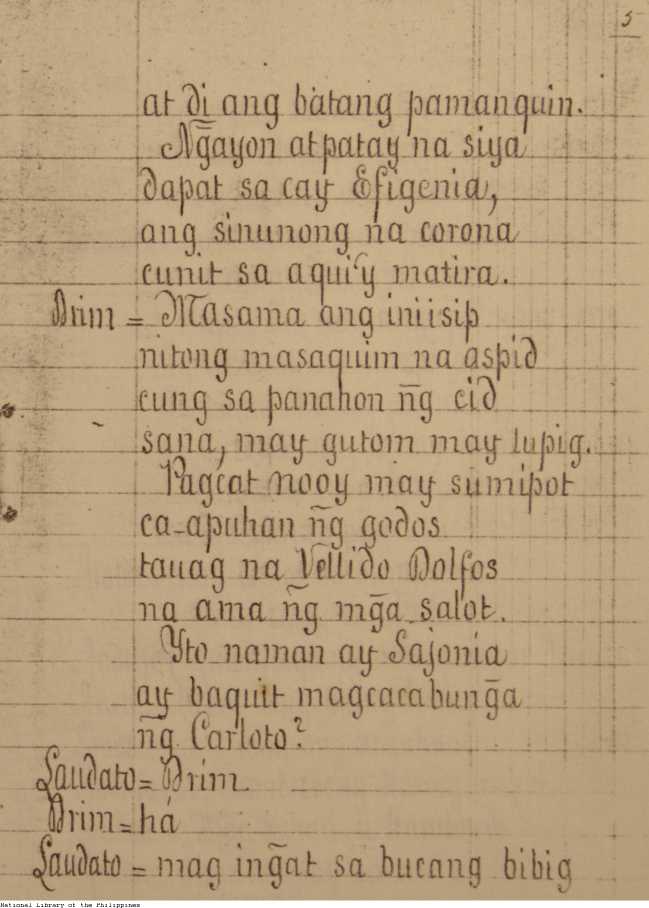 5
at di ang bátang pamanquin.
Ng̃ayon at patay na siya
dapat sa cay Efigenia,
ang sinunong na corona
cunit sa aqui'y matira.
Drim = Masama ang iniisip
nitong masaquim na aspid
cung sa panahon n͠g cid
sana, may gutom may lupig.
Pagcat nooy may sumipot
ca-apuhan n͠g godos
tauag na Vellido Dolfos
na ama n͠g mg̃a salot.
Yto naman ay Sajonia
ay baquit magcacabung̃a
n͠g Carloto?
Laudato = Drim
Drim = há
Laudato = mag ing̃at sa bucang bibig
National Library of the Philippines